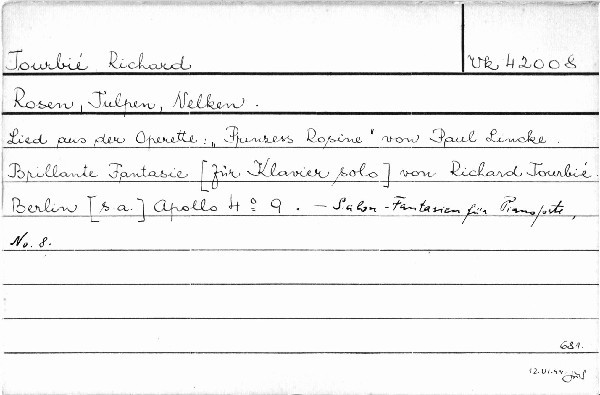 Tourbié Richard
Vk 42008
Rosen, Tulpen, Nelken.
Lied aus der Operette: „Prinzess Rosine" von Paul Lincke.
Brillante Fantasie [für Klavier solo] von Richard Tourbié.
Berlin [s a.] Apollo 4° 9. – Salon-Fantasien für Pianoforte,
No. 8.
681.
12.VI.44